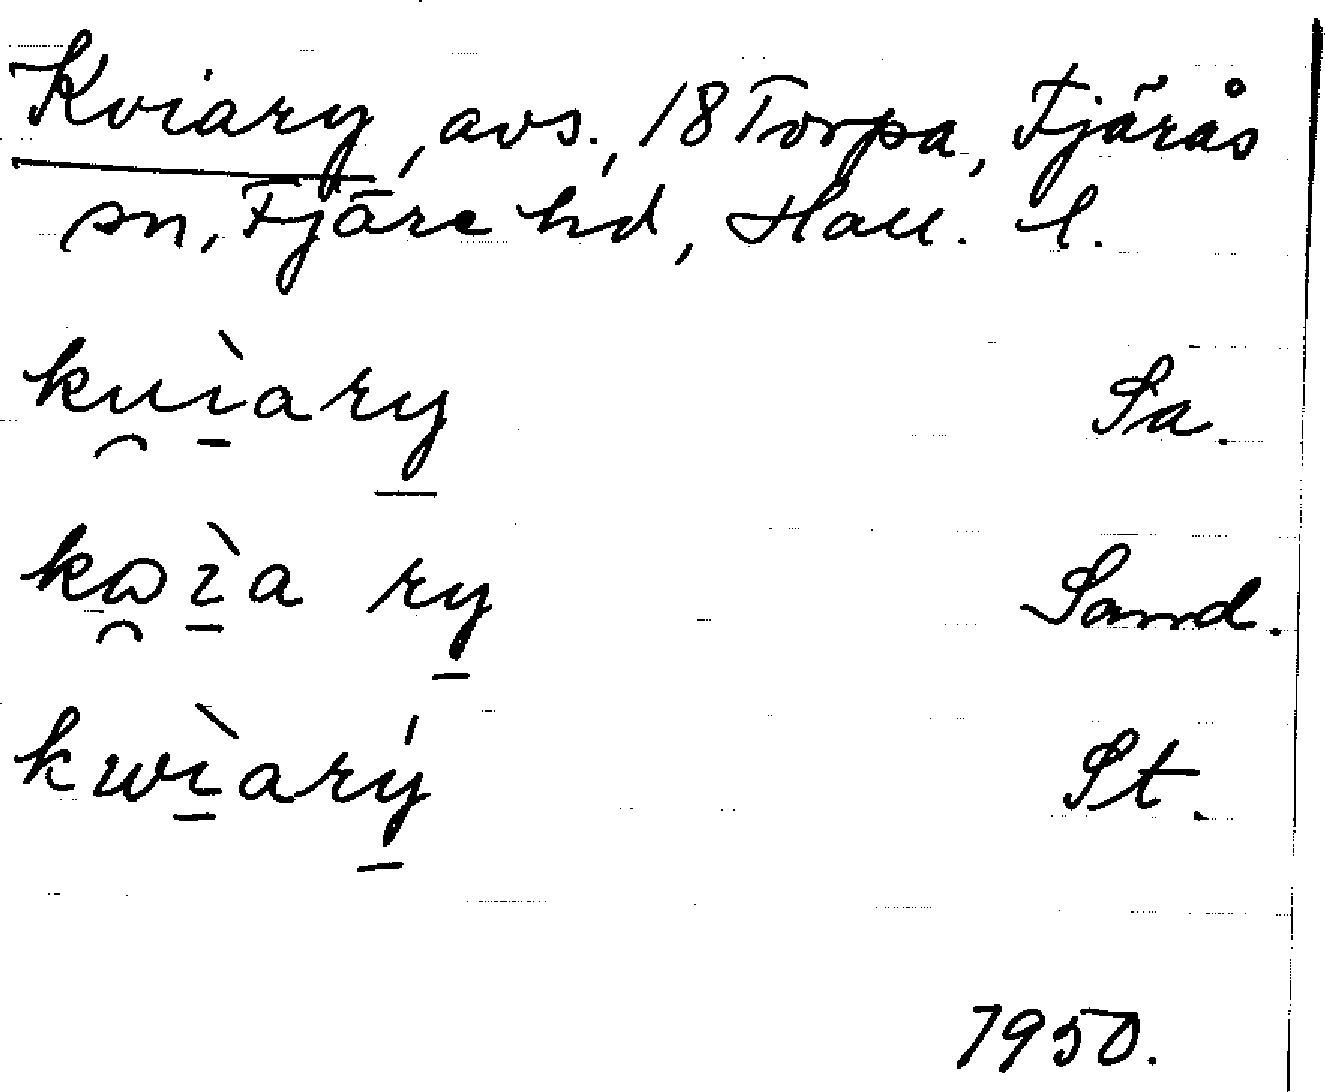 Kviary, avs., 18 Torpa, Fjärås
sn, Fjäre hd, Hall. l.
ku̯ı̱̀ary̱ Sa.
kɷ̯ı̱̀a ry̱ Sand.
kwı̱̀arý̱ St.
1950.